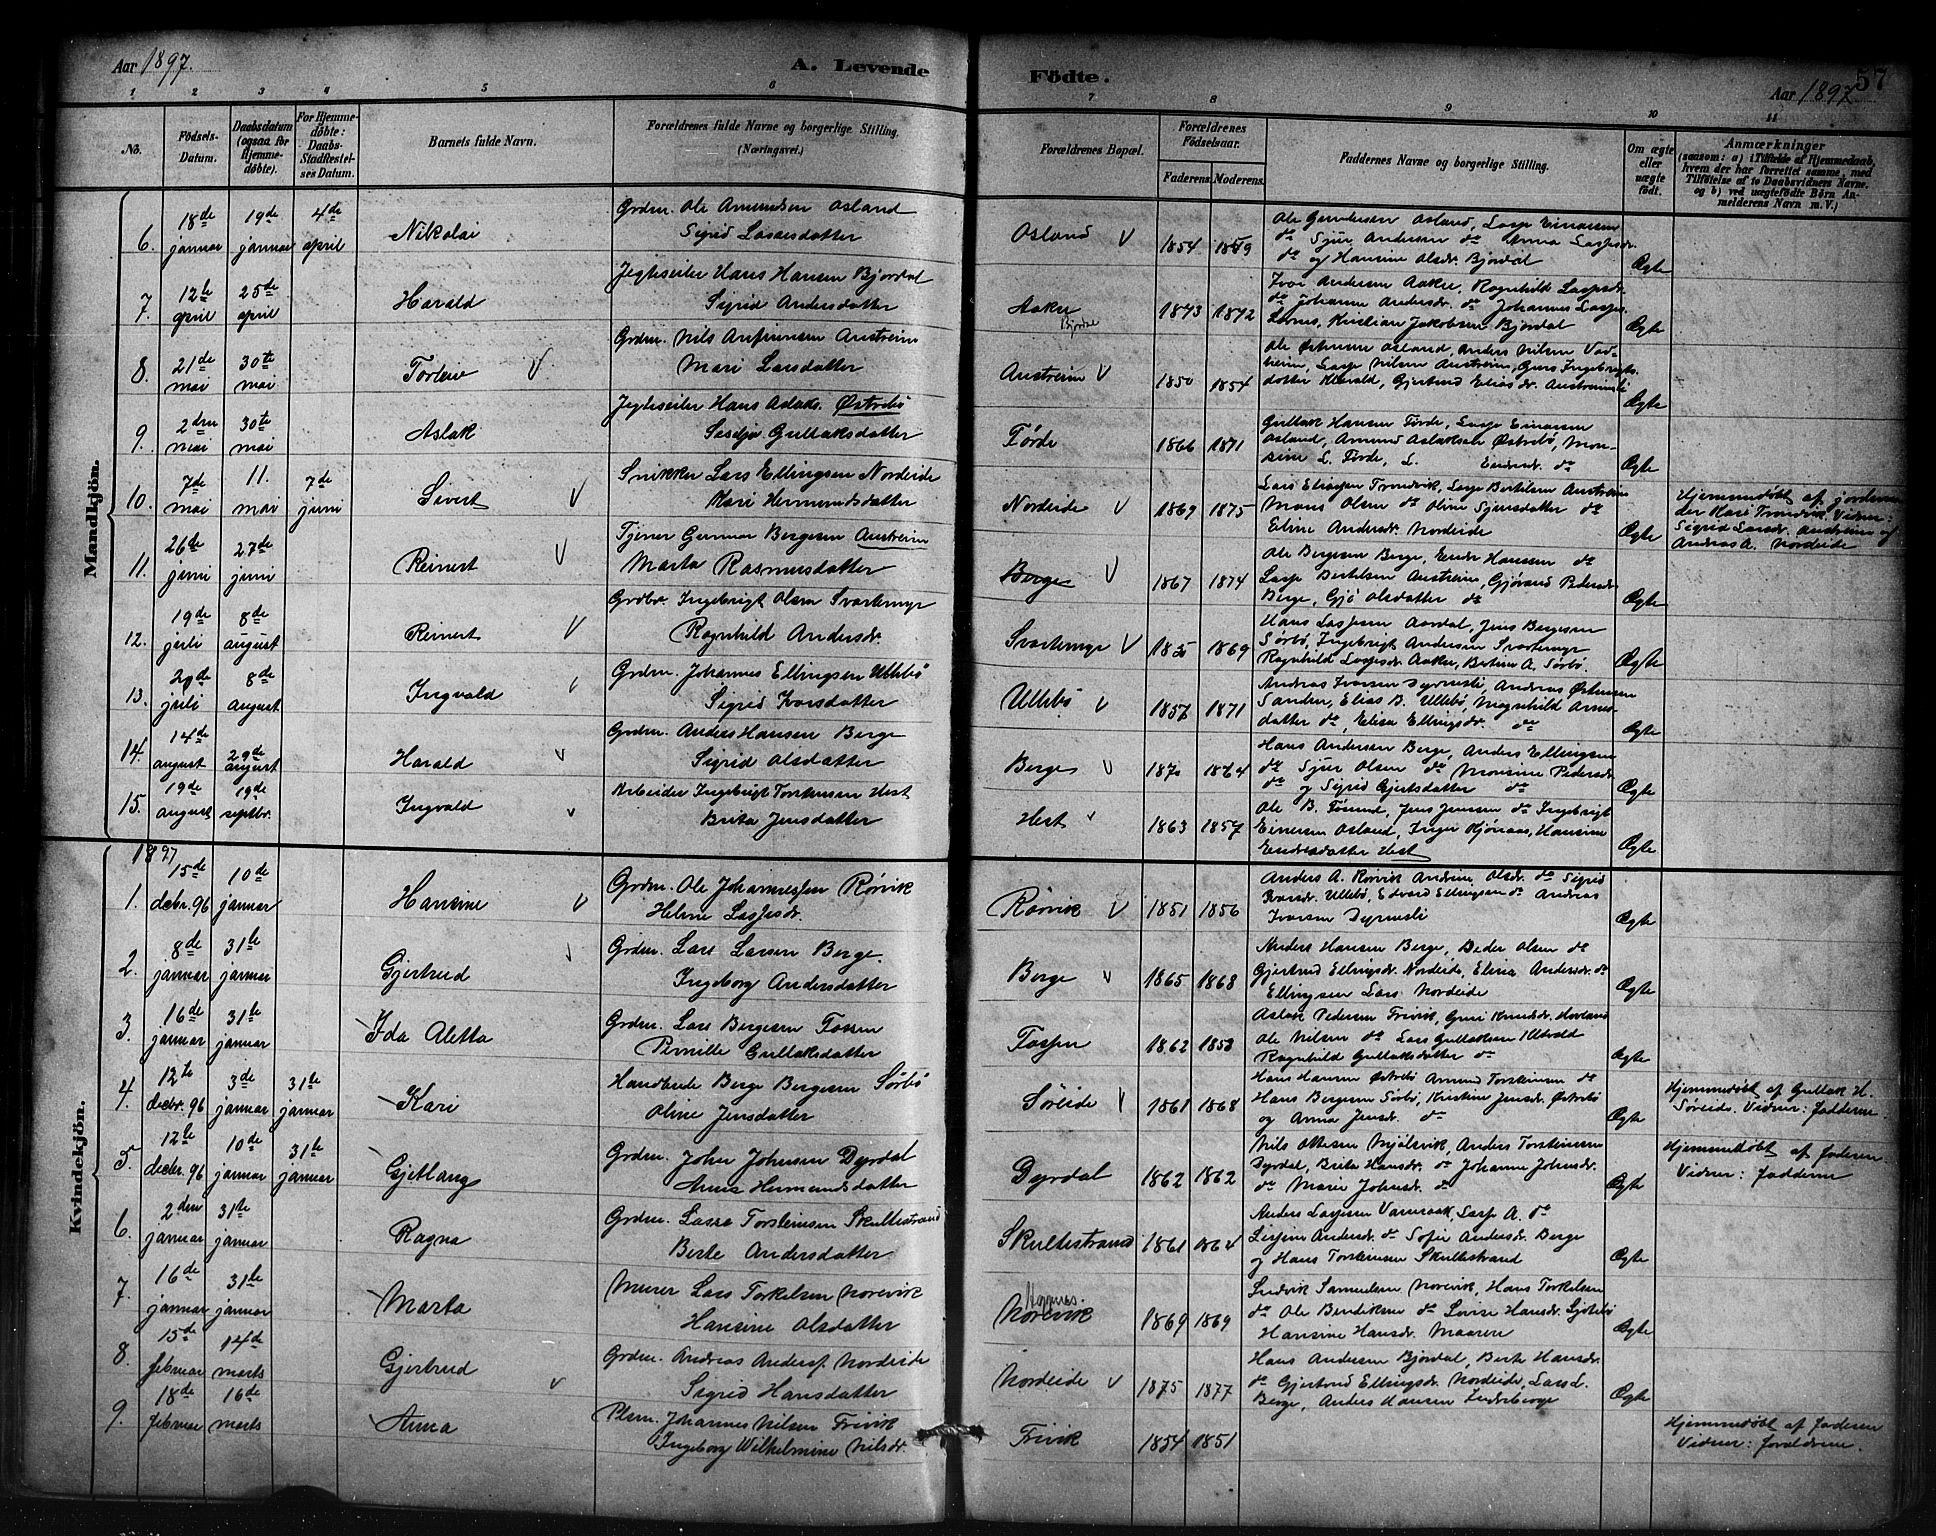 Aar 1897.
A. Levende
Födte.
Aar 1897
57
1 2 3 4 5 6 7 8 9 10 11
No.
Födsels-Datum.
Daabsdatum (ogsaa for Hjemmedöbte).
For Hjemmedöbte: Daabs-Stadfæstelses Datum.
Barnets fulde Navn.
Forældrenes fulde Navne og borgerlige Stilling.
(Næringsvei.)
Forældrenes Bopæl.
Forældrenes Födselsaar.
Faderens. Moderens.
Faddernes Navne og borgerlige Stilling.
Om ægte eller uægte födt.
Anmærkninger
(saasom: a) i Tilfælde af Hjemmedaab, hvem der har forrettet samme, med Tilföielse af to Daabsvidners Navne. og b) ved uægtefödte Börn Anmelderens Navn m. V.)
Mandkjön.
6. 18de januar 19de januar 4de april Nikolai
Grdm. Ole Amundsen Osland
Sigrid Lassesdatter
Osland V 1854 1859
Ole Gundersen Osland, Lasse Einarsen
do Sjur Andersen do Anna Lassesdr.
do og Hansine Olsdr. Bjordal
Ægte
7. 12te april 25de april Harald
Jegteseiler Hans Hansen Bjordal
Sigrid Andersdatter
Aaker Bjordal 1843 1842
Ivar Andersen Aaker, Ragnhild Lassesdr.
do Johanne Andersdr. do Johannes Lasses.
Kristian Jakobsen Bjordal
Ægte
8. 21de mai 30te mai Torleiv V
Grdm. Nils Anfinnsen Austreim
Mari Larsdatter
Austreim V 1850 1854
Ole Østensen Osland, Anders Nilsen Vadheim, Lasse Nilsen Austreim, Guro Ingebrigtsdatter
Gjertrud Eliasdr. Austreim
Ægte
9. 2den mai 30te mai Aslak
Jegteseiler Hans Aslaks. Østrebö
Gullaksdatter
Förde 1866 1871
Gullak Hansen Förde, Lasse Einarsen
Osland, Amund Aslaksen Østrebö, Monsine L. Förde, L. Endresdr. do
Ægte
10. 7de mai 11. mai 7de juni Sivert V
Snikker Lars Ellingsen Nordeide
Mari Hermundsdatter
Nordeide V 1869 1875
Lars Eliassen Trondvik, Lasse Bertelsen Austreim
Mons Olsen do Oline Sjursdatter do
Eline Andersdr. Nordeide
Ægte
Hjemmedöbt af jordemoder Mari Trondvik. Vidner:
Sigrid Larsdr. Austreim og
Andreas A. Nordeide
11. 26de juni 27de juni Reinert V
Tjener Gunnar Bergesen Austreim
Marta Rasmusdatter
Berge V 1867 1874
Ole Bergesen Berge, Endre Hanssen do
Lasse Bertelsen Austreim, Gjörond Pedersdr.
Berge, Gjö Olsdatter do
Ægte
12. 19de juli 8de august Reinert V
Grdbr. Ingebrigt Olsen Svartemyr
Ragnhild Andersdr.
Svartemyr V 1869
Hans Lassesen Aardal, Jens Bergesen
Sörbö, Ingebrigt Andersen Svartemyr
Ragnhild Lassesdr. Aaker, Botine A. Sörbö
Ægte
13. 29de juli 8de august Ingvald V
Grdm. Johannes Ellingsen Ullebö
Sigrid Ivarsdatter
Ullebö V 1857 1871
Andreas Ivarsen Dyrnesli, Andreas Østensen
Sanden, Elias B. Ullebö, Magnhild Arnesdatter do, Elisa Ellingsdr. do
Ægte
14. 14de august 29de august Harald V
Grdm. Anders Hansen Berge
Sigrid Olsdatter
Berge V 1870 1864
Hans Andersen Berge, Anders Ellingsen
do Sjur Olsen do Monsine Pedersdr.
do og Sigrid Gjertsdatter do
Ægte
15. 19de august 19de septbr. Ingvald V
Arbeider Ingebrigt Torstensen Hest
Brita Jensdatter
Hest V 1863 1857
Ole B. Jens Jenssen do Ingebrigt
Einersen Osland, Inger Hansine
Endresdatter Hest
Ægte
Kvindekjön.
1897
1. 15de decbr. 96 10de januar Hansine V
Grdm. Ole Johannessen Rörvik
Helene Lassesdr.
Rörvik V 1851 1856
Anders A. Rörvik Andrine Olsdr. do Sigrid
Ivarsdr. Ullebö, Edvard Ellingsen do Andreas
Ivarsen Dyrnesli
Ægte
2. 8de januar 31te januar Gjertrud V
Grdm. Lars Larsen Berge.
Ingeborg Andersdatter
Berge V 1865 1868
Anders Hansen Berge, Peder Olsen do
Gjertrud Ellingsdr. Nordeide, Elina Andersdr. do
Ellingsen Lars Nordeide
Ægte
3. 16de januar 31te januar Ida Aletta
Grdm. Lars Bergesen Fossen
Pernille Gullaksdatter
Fossen 1862 1858
Aslak Pedersen Trivik, Guri Knudsdr. Hovland
Ole Nilsen do Lars Gullaksen
Ragnhild Gullaksdatter do
Ægte
4. 12te decbr. 96 3de januar 31te januar Kari
Handlende Berge Bergesen Sörbö
Oline Jensdatter
Söreide V 1861 1868
Hans Hansen Østrebö Amund Torsteinsen do
Hans Bergesen Sörbö, Kristine Jensdr. Østrebö
og Anna Jensdr. do
Ægte
Hjemmedöbt af Gullak H.
Söreide. Vidner: fadderne
5. 12te decbr. 96 10de januar 31te januar Gjetlaug
Grdm. Joher Johnsen Dyrdal
Anna Hermundsdatter
Dyrdal 1862 1862
Nils Ottesen Mjölsvik, Anders Torsteinsen
Dyrdal, Brita Hansdr. do Johanne Johnsdr.
do Marie Johnsdr. do
Ægte
Hjemmedöbt af faderen.
Vidner: fadderne
6. 2den januar 31te januar Ragna
Grdm. Lasse Torsteinsen Skultestrand
Berte Andersdatter
Skultestrand 1861 1864
Anders Lassesen Vamraak, Lasse A. do
Andersdr. do Sofie Andersdr. Berge
og Hans Torsteinsen Skultestrand
Ægte
7. 16de januar 31te januar Marta
Murer Lars Torkelsen Norevik
Hansine Olsdatter
Norevik 1869 1869
Ludvik Samuelsen Norevik, Hans Torkelsen
do Ole Bendiksen do Lovise Hansdr.
Hansine Hansdr. Maaren
Ægte
8. 15de februar 14de marts Gjertrud V
Grdm. Andreas Anders. Nordeide
Sigrid Hansdatter
Nordeide V 1875 1877
Hans Andersen Bjordal, Berte Hansdr.
do Gjertrud Ellingsdr. Nordeide, Lars L.
Berge, Anders Hansen Inderberge
Ægte
9. 18de februar 16de marts Anna
Plsm. Johannes Nilsen Trivik
Ingeborg Wilhelmine Nilsdr.
Trivik 1854 1851
Hjemmedöbt af faderen
Vidner: forældrene.